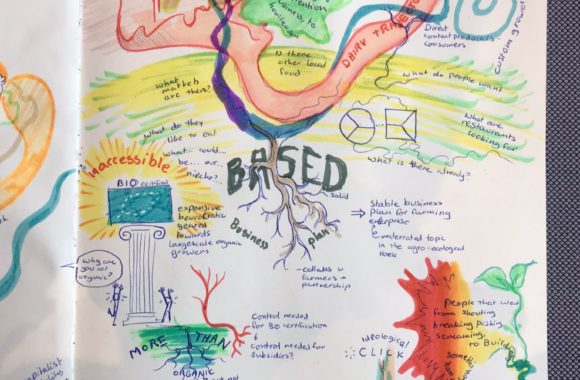 to
Direct
contact producers -
consumers
custom grower
DAIRY TRAJECTO
is there
other local
food
what
markets
are there?
what do people want
what are
restaurants
looking for
what do they
like to eat
what... could...
be... our...
niche?
what is there already?
inaccessible
BASED
solid
BIO certified
expensive
geared
towards
largescale organic
growers
Business
plan
Stable business
plan for farming
enterprise
in the agro-ecological
collabs w
farmers -
partnership
why are
you not
organic?
Control needed
for BIO certification
control needed for
subsidies?
MORE THAN
ORGANIC
not
ideological
CLICK
People that went
from shouting
screaming,
to Build
Something